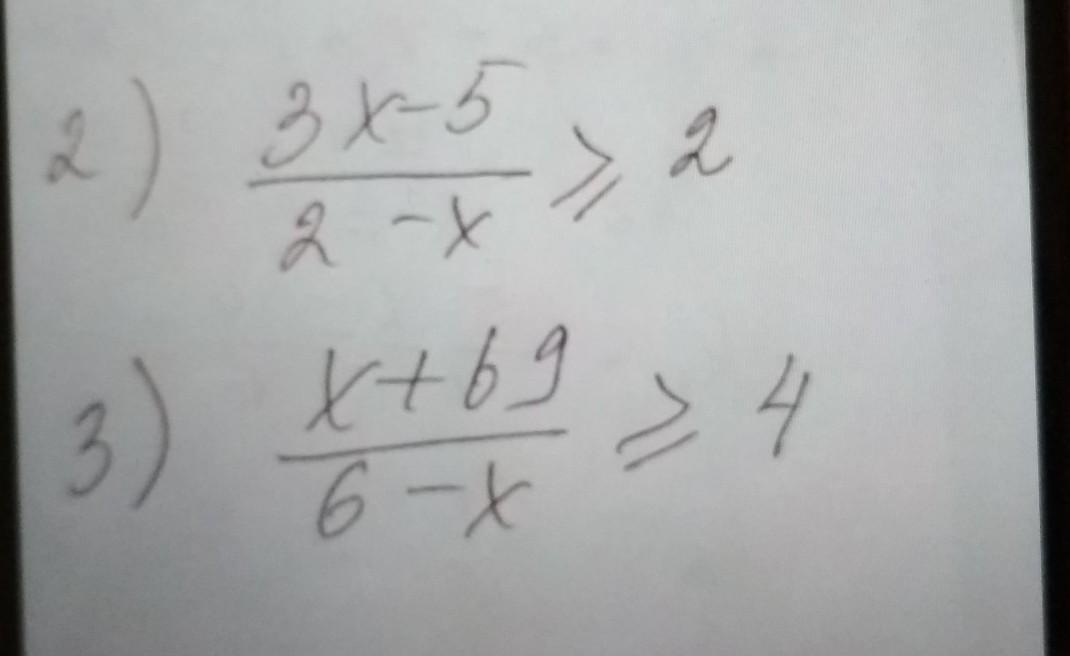 2) (3x-5)/(2-x) ⩾ 2
3) (x+69)/(6-x) ⩾ 4